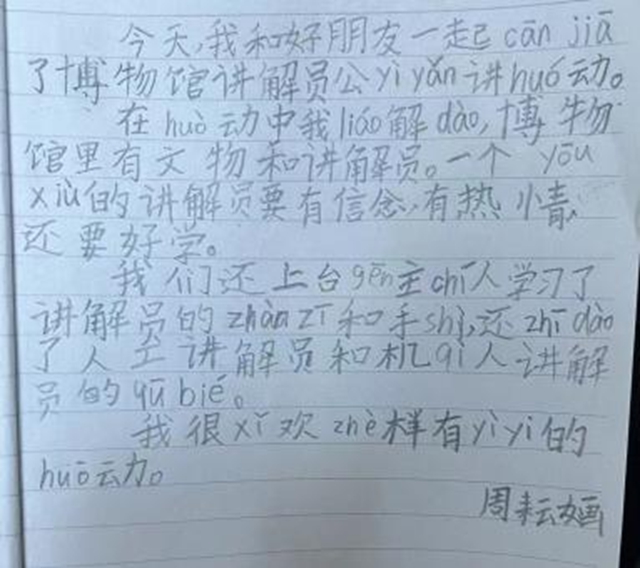 今天,我和好朋友一起cān jiā
了博物馆讲解员公yì yǎn讲huó动。
在huó动中我liáo解dào,博物
馆里有文物和讲解员。一个yōu
xiù的讲解员要有信念,有热情,
还要好学。
我们还上台gēn主chī人学习了
讲解员的zhàn zī和手shì,还zhī dào
了人工讲解员和机qì人讲解
员的qū bié。
我很xǐ欢zhè样有yì yi的
huō动。
周耘